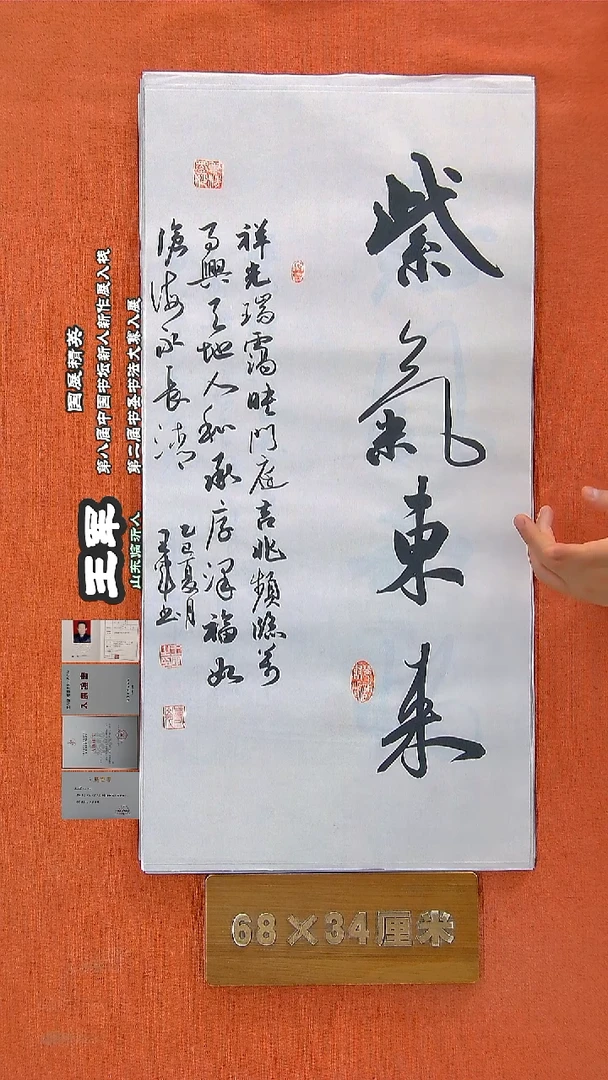 紫氣東來
祥光瑞靄映門庭吉兆頻臨萬
事興天地人和承厚澤福如
滄海永長清
乙巳夏月
王軍书
国展精英
第八届中国书坛新人新作展入视
第二届书圣书法大赛入展
王军
山东临沂人
68×34厘米